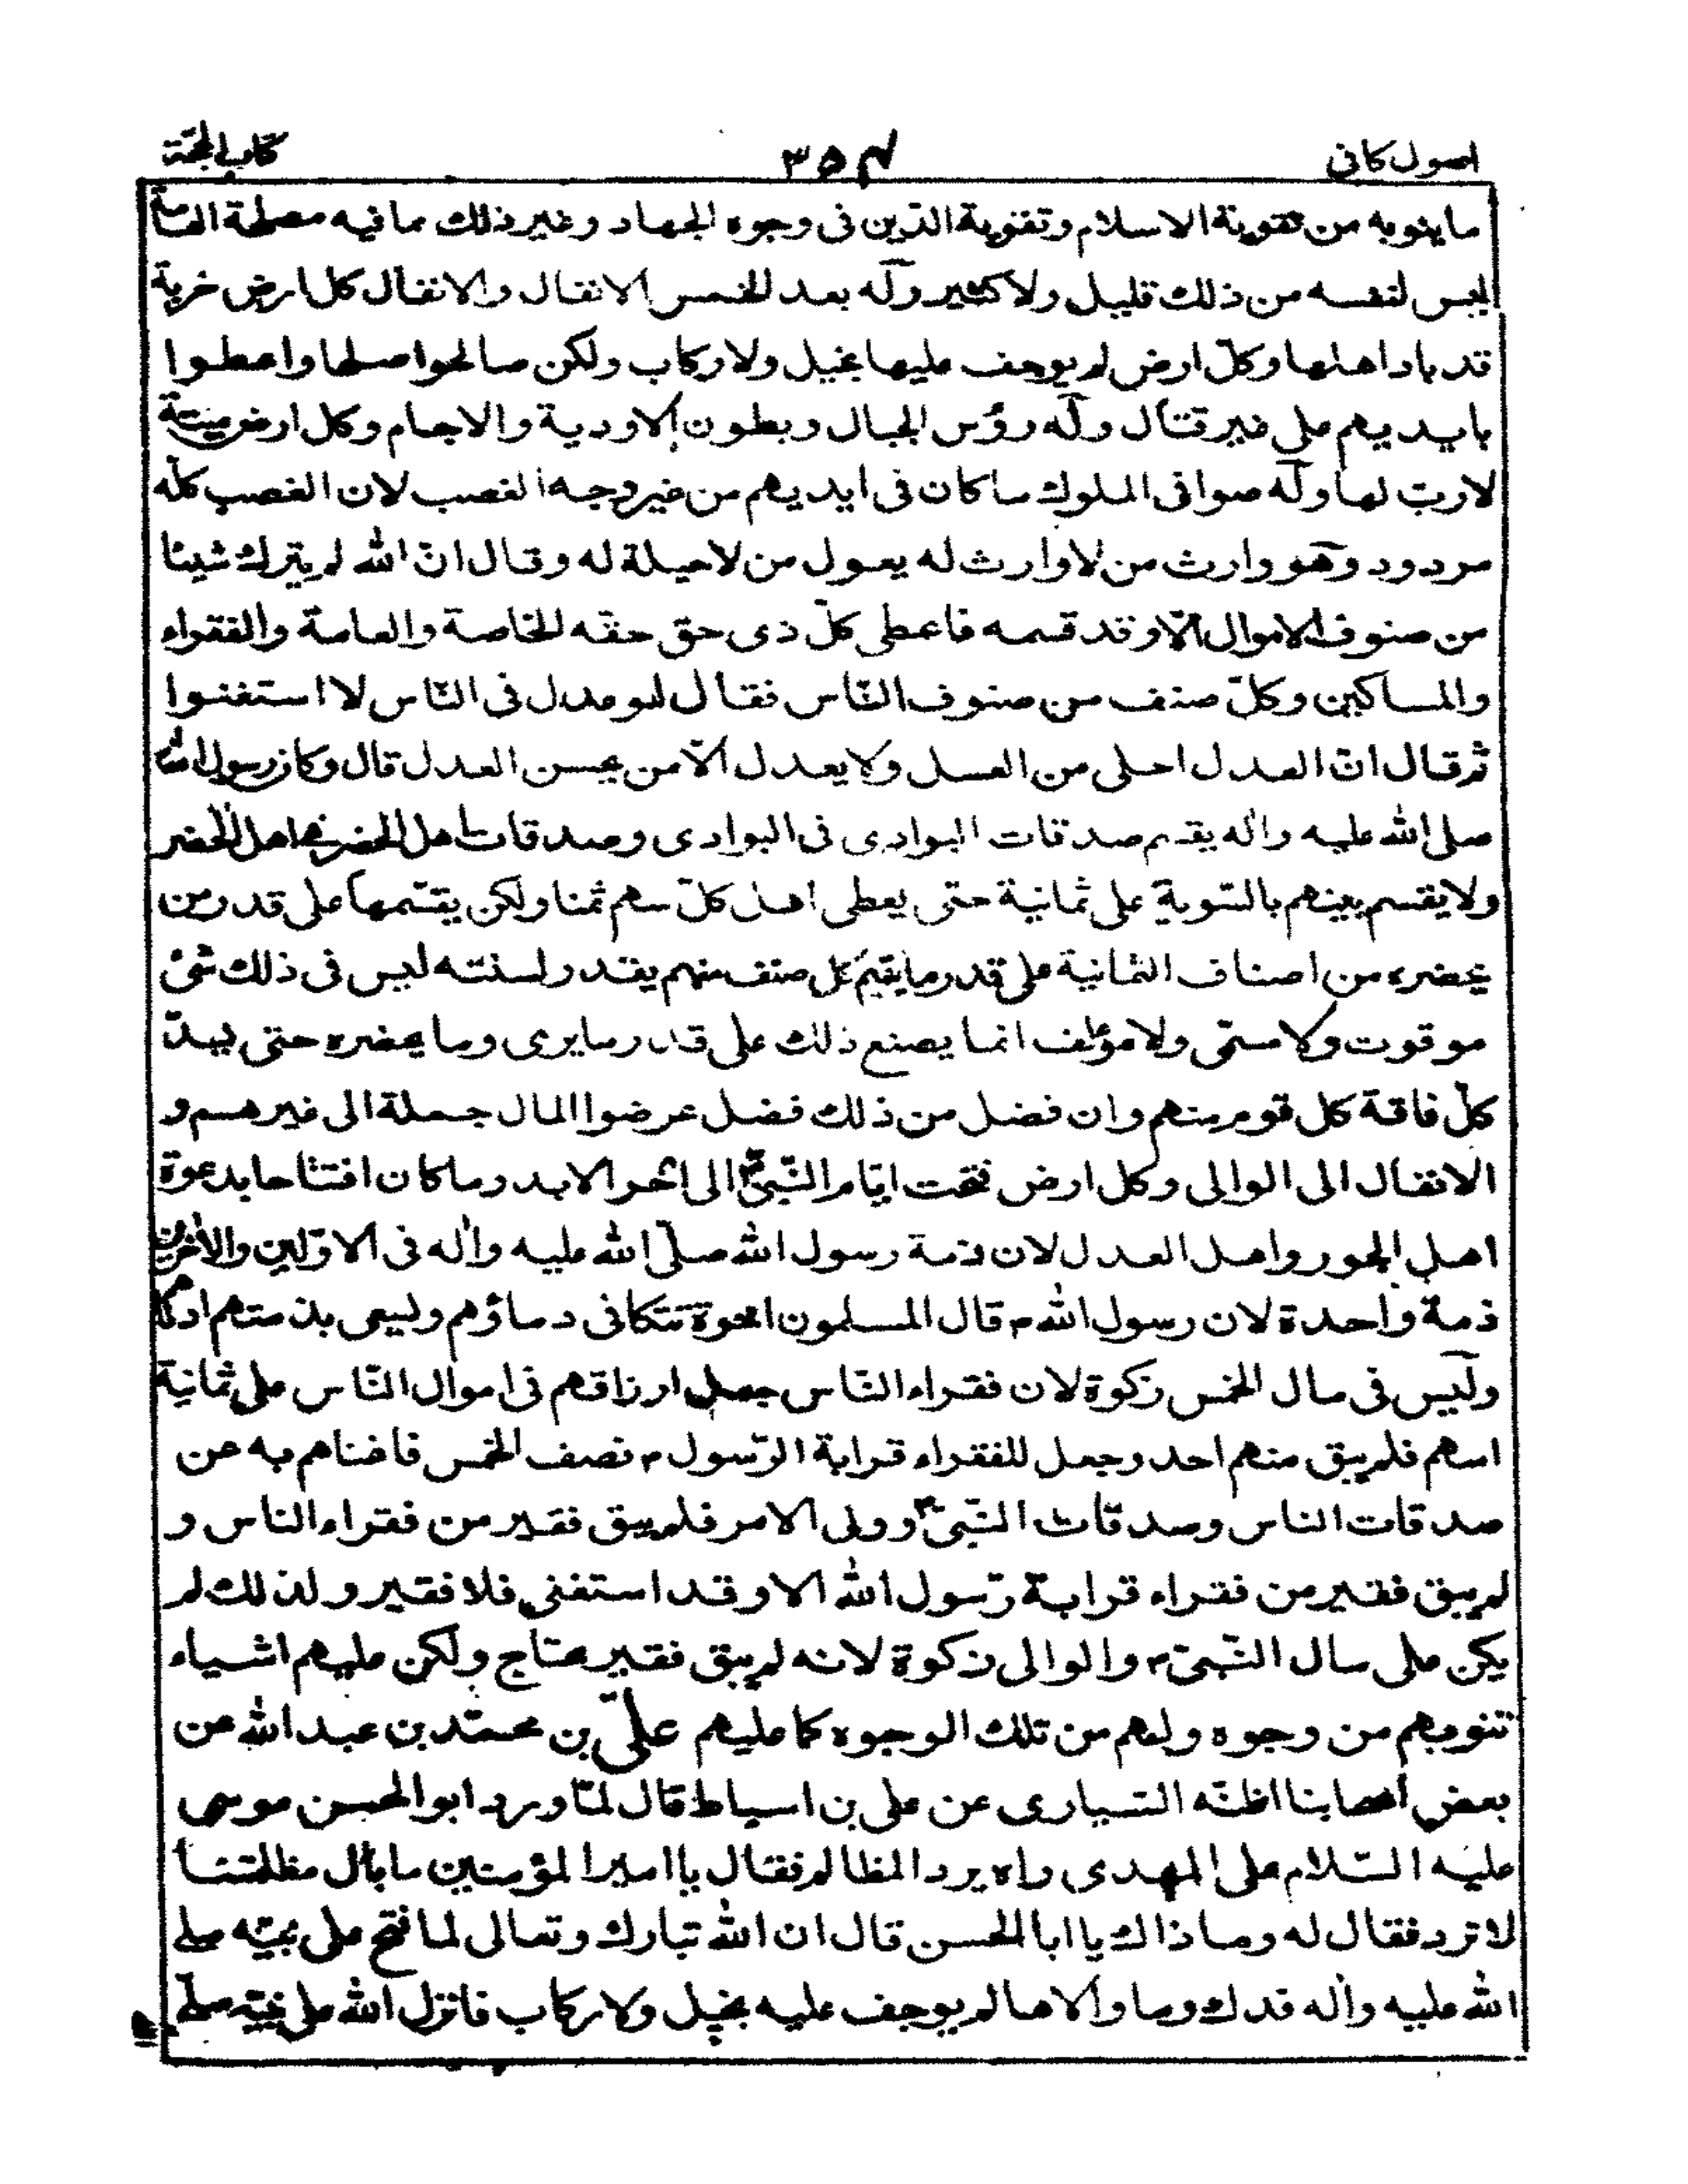 اصول كافى ٣٥٤ كتاب الحجّة
ما ينوبه من تقوية الاسلام وتقوية الدّين فى وجوه الجهاد وغير ذلك مما فيه مصلحة العامة
ليس لنفسه من ذلك قليل ولا كثير وله بعد الخمس الانفال والانفال كل ارض خربة
قد باد اهلها وكلّ ارض لم يوجف عليها بخيل ولا ركاب ولكن صالحوا صلحا واعطوا
بايديهم على غير قتال وله رؤس الجبال وبطون الاودية والاجام وكل ارض ميتة
لا ربّ لها وله صوافى الملوك ما كان فى ايديهم من غير وجه الغصب لان الغصب كلّه
مردود وهو وارث من لا وارث له يعول من لا حيلة له وقال انّ الله لم يترك شيئا
من صنوف الاموال الّا وقد قسمه فاعطى كلّ ذى حق حقه الخاصة والعامة والفقراء
والمساكين وكلّ صنف من صنوف النّاس فقال لو عدل فى النّاس لاستغنوا
ثم قال انّ العدل احلى من العسل ولا يعدل الّا من يحسن العدل قال وكان رسول الله
صلى الله عليه واله يقسم صدقات البوادى فى البوادى وصدقات اهل الحضر فى اهل الحضر
ولا يقسم بينهم بالسّوية على ثمانية حتى يعطى اهل كلّ سهم ثمنا ولكن يقسّمها على قدر من
يحضره من اصناف الثمانية على قدر ما يقيم كل صنف منهم يقدر لسنته ليس فى ذلك شئ
موقوت ولا مسمّى ولا مؤلف انما يصنع ذلك على قدر ما يرى وما يحضره حتى يسدّ
كلّ فاقة كل قوم منهم وان فضل من ذلك فضل عرضوا المال جملة الى غيرهم و
الانفال الى الوالى وكل ارض فتحت ايّام النّبىّ ص الى اخر الابد وما كان افتتاحا بدعوة
اهل الجور واهل العدل لان ذمة رسول الله صلّى الله عليه واله فى الاوّلين والاخرين
ذمة واحدة لان رسول الله ص قال المسلمون اخوة تتكافى دماؤهم ويسعى بذمتهم ادناهم
وليس فى مال الخمس زكوة لان فقراء النّاس جعل ارزاقهم فى اموال النّاس على ثمانية
اسهم فلم يبق منهم احد وجعل للفقراء قرابة الرّسول ص نصف الخمس فاغناهم به عن
صدقات الناس وصدقات النّبىّ ص وولى الامر فلم يبق فقير من فقراء الناس و
لم يبق فقير من فقراء قرابة رّسول الله الا وقد استغنى فلا فقير ولذلك لم
يكن على مال النّبىّ ص والوالى زكوة لانه لم يبق فقير محتاج ولكن عليهم اشياء
تنوبهم من وجوه ولهم من تلك الوجوه كما عليهم علىّ بن محمّد بن عبد الله عن
بعض أصحابنا اظنّه السّيارى عن على بن اسباط قال لمّا ورد ابو الحسن موسى
عليه السّلام على المهدى راه يرد المظالم فقال يا امير المؤمنين ما بال مظلمتنا
لا ترد فقال له وما ذاك يا ابا الحسن قال ان الله تبارك وتعالى لما فتح على نبيّه صلى
الله عليه واله فدك وما والاها لم يوجف عليه بخيل ولا ركاب فانزل الله على نبيّه صلّى